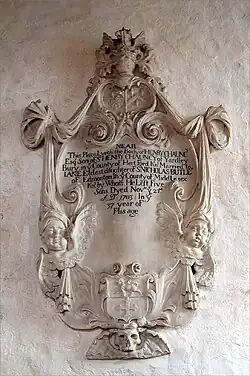 NEAR
This Place Lyeth the Body of HENRY CHAUNCY
Esq Son of Sr HENRY CHAUNCY of Yardley
Bury in ye County of Hertford Kt Married to
IANE Eldest daughter of Sr NICHOLAS BUTLER
of Edmonton In ye County of Middlesex
Kt by Whom He Left Five
Sons Dyed Novr ye 23d
A D 1703 In ye
37 year of
His age